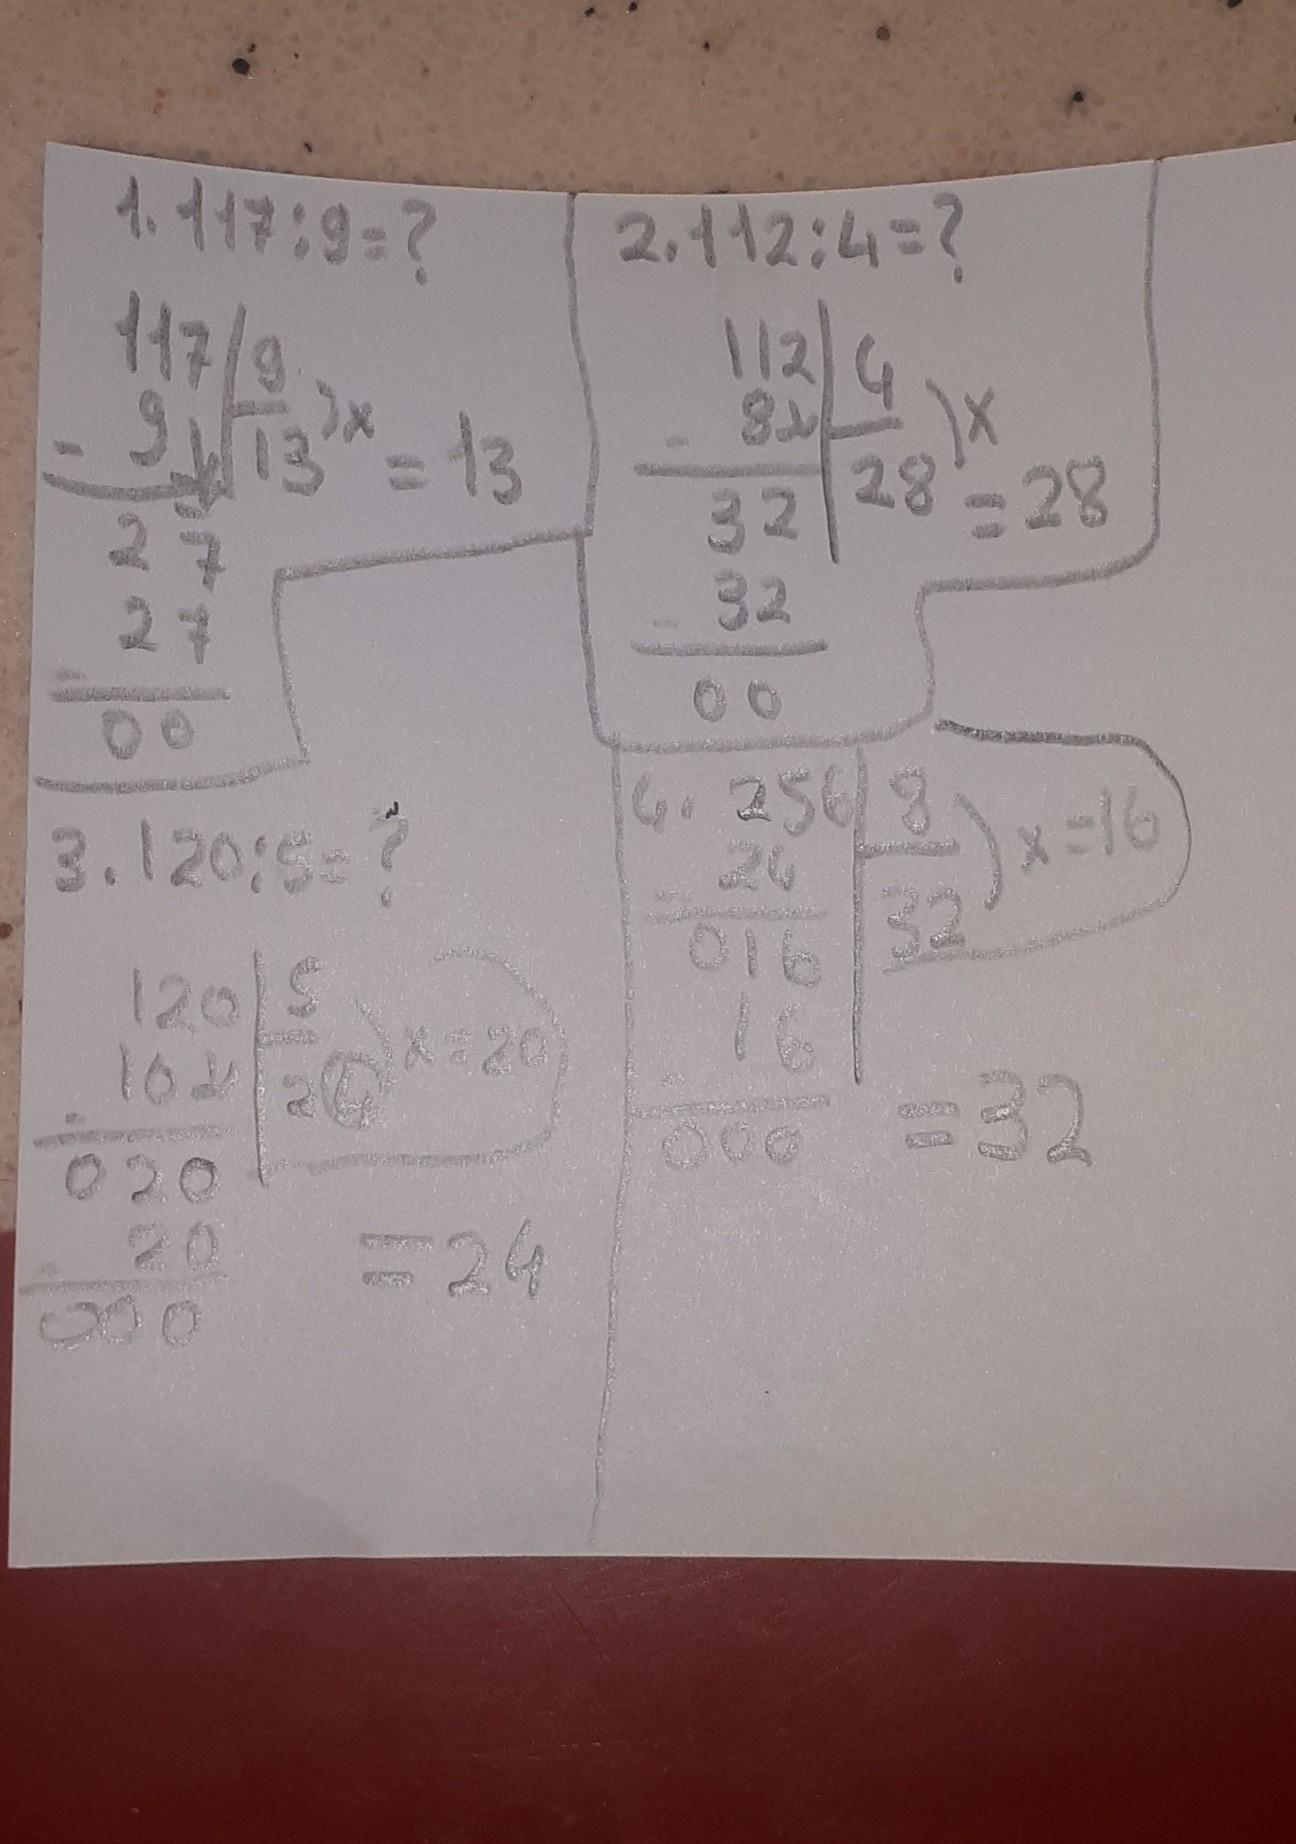 1. 117:9=?
117 9
- 9 )x
13 = 13
27
27
-
00
2. 112:4=?
112 4
- 8 )x
28 = 28
32
- 32
00
3. 120:5=?
120 5
- 10 24 ) x=20
020
- 20
000
= 24
4. 256 8
- 24 ) x=16
32
016
16
-
000
= 32